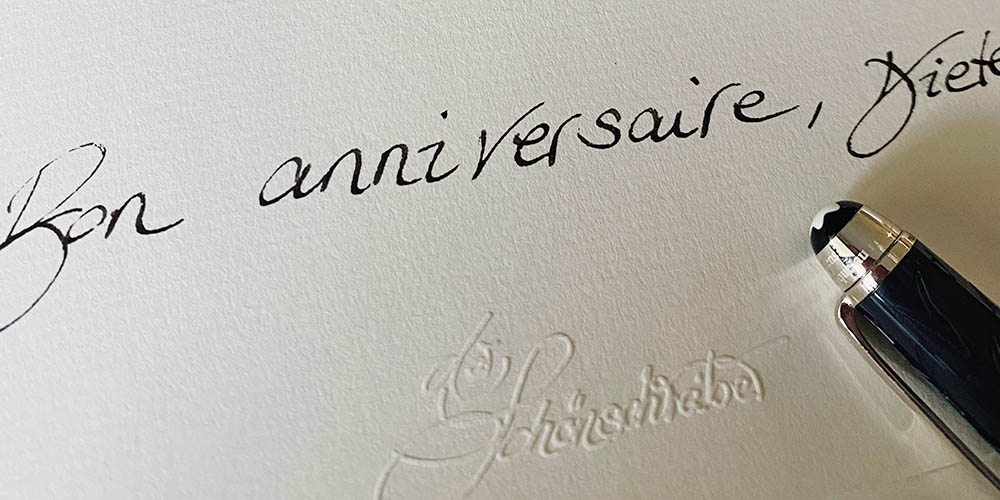 Bon anniversaire, Diete
Schönschreiber